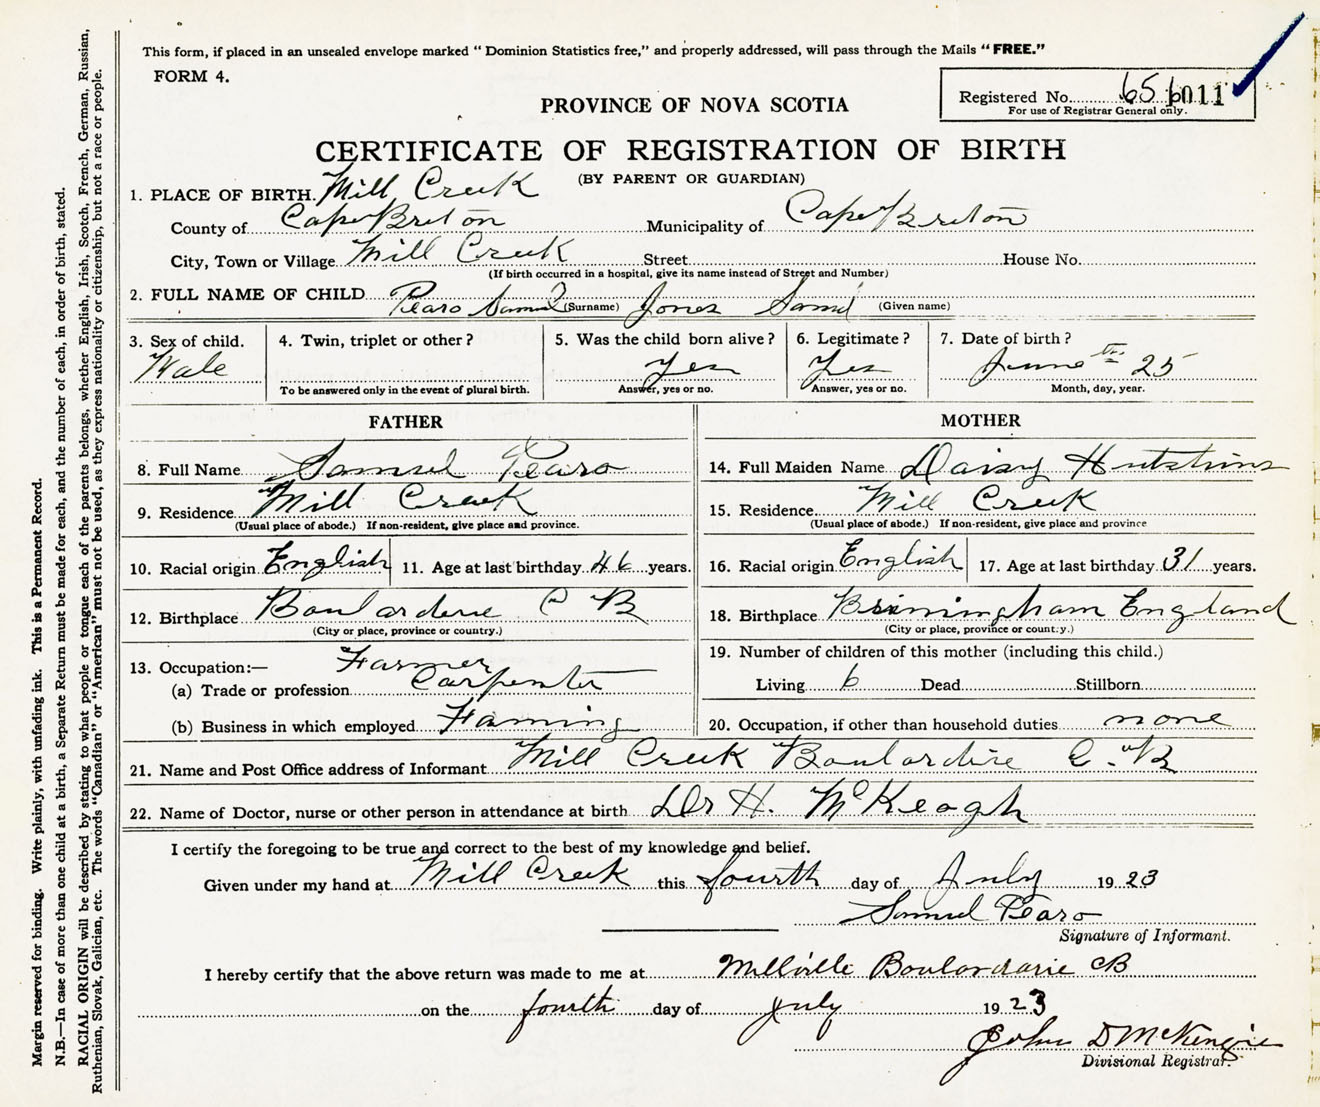 This form, if placed in an unsealed envelope marked "Dominion Statistics free," and properly addressed, will pass through the Mails "FREE."
FORM 4.
Registered No. 656 1011
For use of Registrar General only.
PROVINCE OF NOVA SCOTIA
CERTIFICATE OF REGISTRATION OF BIRTH
(BY PARENT OR GUARDIAN)
1. PLACE OF BIRTH. Mill Creek
County of Cape Breton Municipality of Cape Breton
City, Town or Village Mill Creek Street House No.
(If birth occurred in a hospital, give its name instead of Street and Number)
2. FULL NAME OF CHILD Pearo Samuel (Surname) Jones (Given name)
3. Sex of child. 4. Twin, triplet or other? 5. Was the child born alive? 6. Legitimate? 7. Date of birth?
Male Yes Yes June 25th
To be answered only in the event of plural birth. Answer, yes or no. Answer, yes or no. Month, day, year.
FATHER MOTHER
8. Full Name Samuel Pearo
9. Residence Mill Creek
(Usual place of abode.) If non-resident, give place and province.
10. Racial origin English 11. Age at last birthday 46 years.
12. Birthplace Boulardrie C B
(City or place, province or country.)
13. Occupation:— Farmer
(a) Trade or profession Carpenter
(b) Business in which employed Farming
14. Full Maiden Name Daisy
15. Residence Mill Creek
(Usual place of abode.) If non-resident, give place and province
16. Racial origin English 17. Age at last birthday 31 years.
18. Birthplace Birmingham England
(City or place, province or country.)
19. Number of children of this mother (including this child.)
Living 6 Dead Stillborn
20. Occupation, if other than household duties none
21. Name and Post Office address of Informant Mill Creek Boulardrie C. B
22. Name of Doctor, nurse or other person in attendance at birth Dr H. McKeogh
I certify the foregoing to be true and correct to the best of my knowledge and belief.
Given under my hand at Mill Creek this fourth day of July 1923
Samuel Pearo
Signature of Informant.
I hereby certify that the above return was made to me at Millville Boulardarie CB
on the fourth day of July 1923
John D McKenzie
Divisional Registrar.
Margin reserved for binding. Write plainly, with unfading ink. This is a Permanent Record.
N.B.—In case of more than one child at a birth, a Separate Return must be made for each, and the number of each, in order of birth, stated.
RACIAL ORIGIN will be described by stating to what people or tongue each of the parents belongs, whether English, Irish, Scotch, French, German, Russian,
Ruthenian, Slovak, Galician, etc. The words "Canadian" or "American" must not be used, as they express nationality or citizenship, but not a race or people.